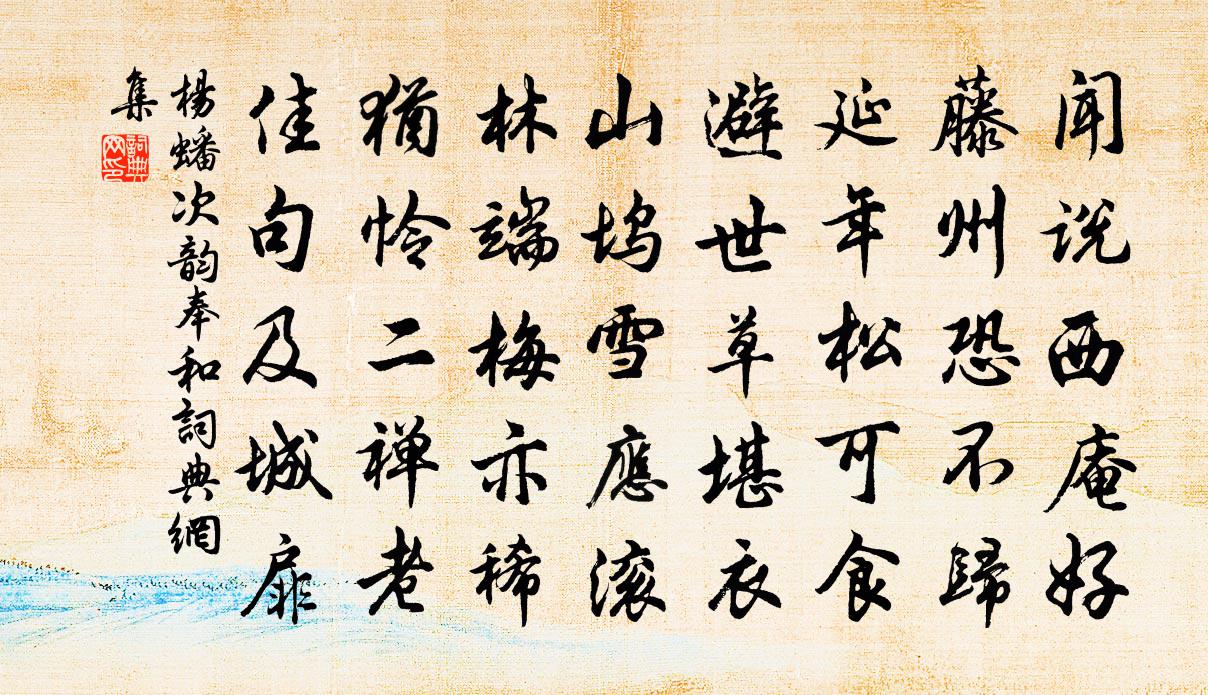 闻说西庵好
藤州恐不歸
延年松可食
避世草堪衣
山坞雪應滚
林端梅亦稀
猶怜二禅老
佳句及城扉
楊蟠次韵奉和詞典網
集
詞典網印